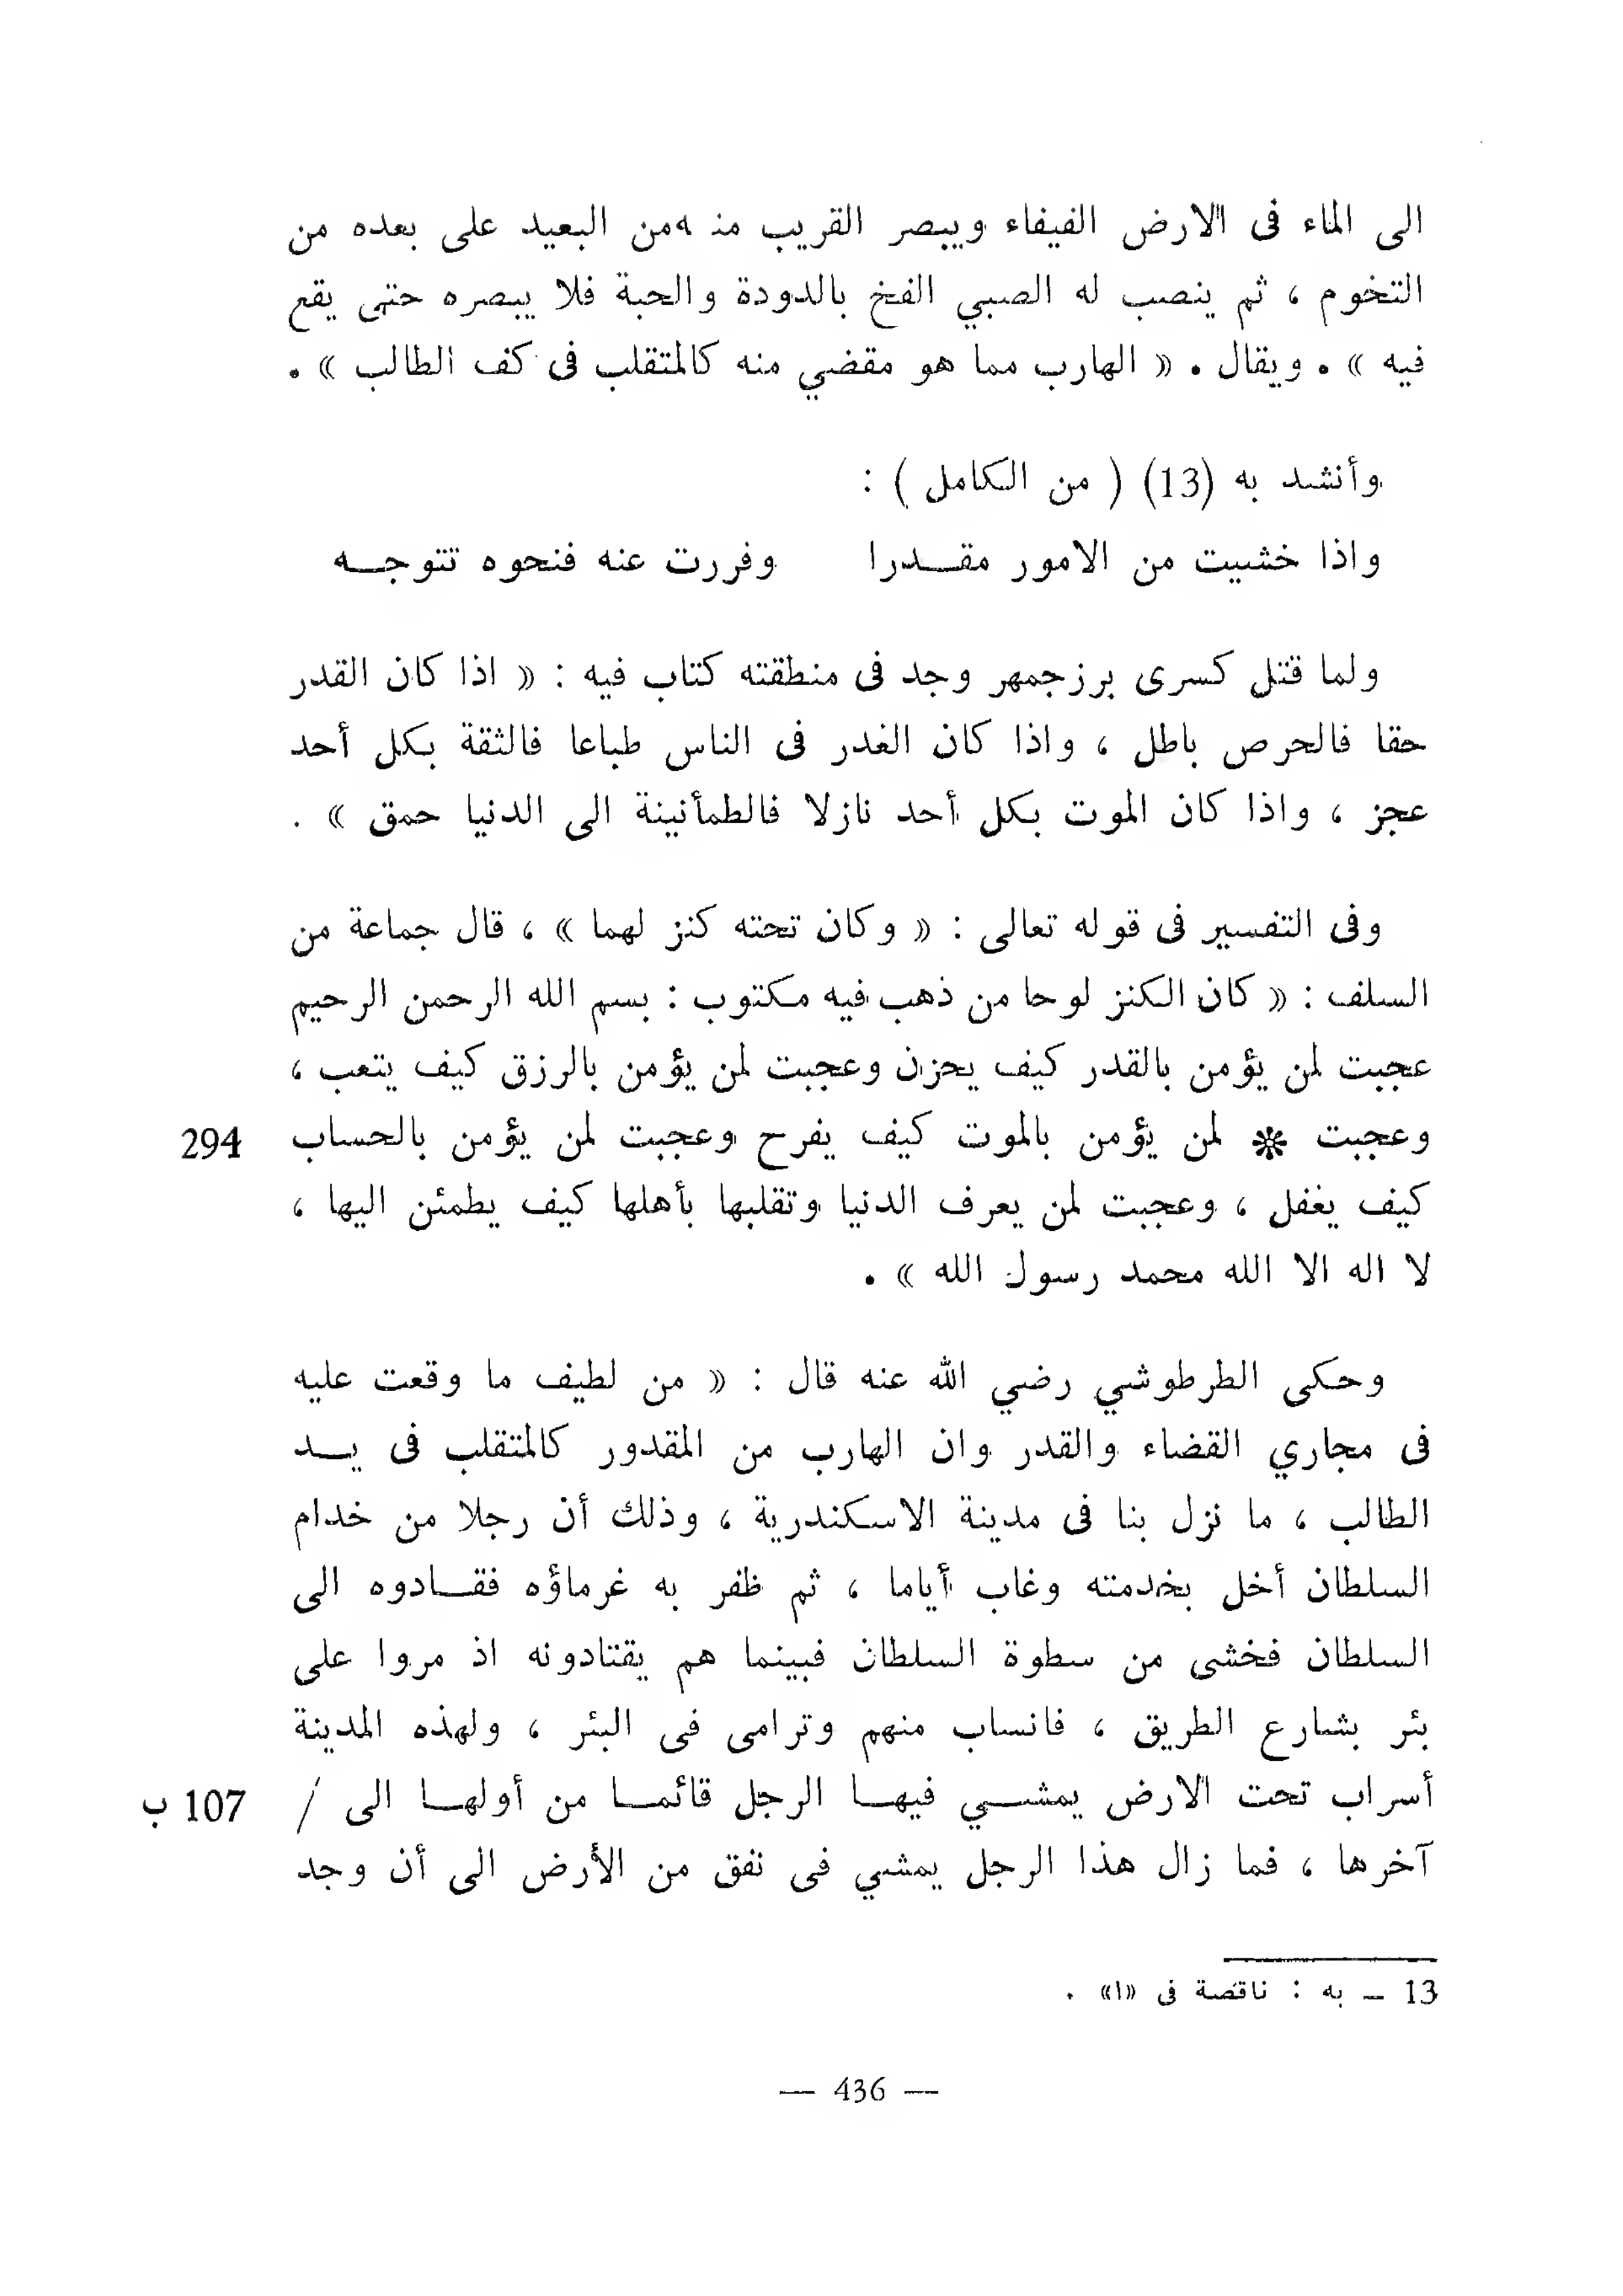 الى الماء فى الارض الفيفاء ويبصر القريب منـ ه من البعيد على بعده من
التخوم ، ثم ينصب له الصبي الفخ بالدودة والحبة فلا يبصره حتى يقع
فيه » . ويقال . « الهارب مما هو مقضي منه كالمتقلب فى كف الطالب » .
وأنشد به (13) ( من الكامل ) :
واذا خشيت من الامور مقـدرا وفررت عنه فنحوه تتوجـه
ولما قتل كسرى برزجمهر وجد فى منطقته كتاب فيه : « اذا كان القدر
حقا فالحرص باطل ، واذا كان الغدر فى الناس طباعا فالثقة بكل أحد
عجز ، واذا كان الموت بكل أحد نازلا فالطمأنينة الى الدنيا حمق » .
وفى التفسير فى قوله تعالى : « وكان تحته كنز لهما » ، قال جماعة من
السلف : « كان الكنز لوحا من ذهب فيه مكتوب : بسم الله الرحمن الرحيم
عجبت لمن يؤمن بالقدر كيف يحزن وعجبت لمن يؤمن بالرزق كيف يتعب ،
وعجبت * لمن يؤمن بالموت كيف يفرح وعجبت لمن يؤمن بالحساب 294
كيف يغفل ، وعجبت لمن يعرف الدنيا وتقلبها بأهلها كيف يطمئن اليها ،
لا اله الا الله محمد رسول الله » .
وحكى الطرطوشي رضي الله عنه قال : « من لطيف ما وقعت عليه
فى مجاري القضاء والقدر وان الهارب من المقدور كالمتقلب فى يـد
الطالب ، ما نزل بنا فى مدينة الاسكندرية ، وذلك أن رجلا من خدام
السلطان أخل بخدمته وغاب أياما ، ثم ظفر به غرماؤه فقـادوه الى
السلطان فخشى من سطوة السلطان فبينما هم يقتادونه اذ مروا على
بئر بشارع الطريق ، فانساب منهم وترامى فى البئر ، ولهذه المدينة
أسراب تحت الارض يمشـي فيهـا الرجل قائمـا من أولهـا الى / 107 ب
آخرها ، فما زال هذا الرجل يمشي فى نفق من الأرض الى أن وجد
13 ـ به : ناقصة فى «ا» .
— 436 —